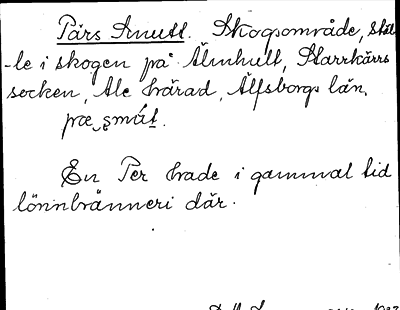 Pärs Smutt. Skogsområde, stäl
-le i skogen på Älmhult, Starrkärrs
socken, Ale härad, Älfsborgs län.
En Per hade i gammal tid
lönnbränneri där.